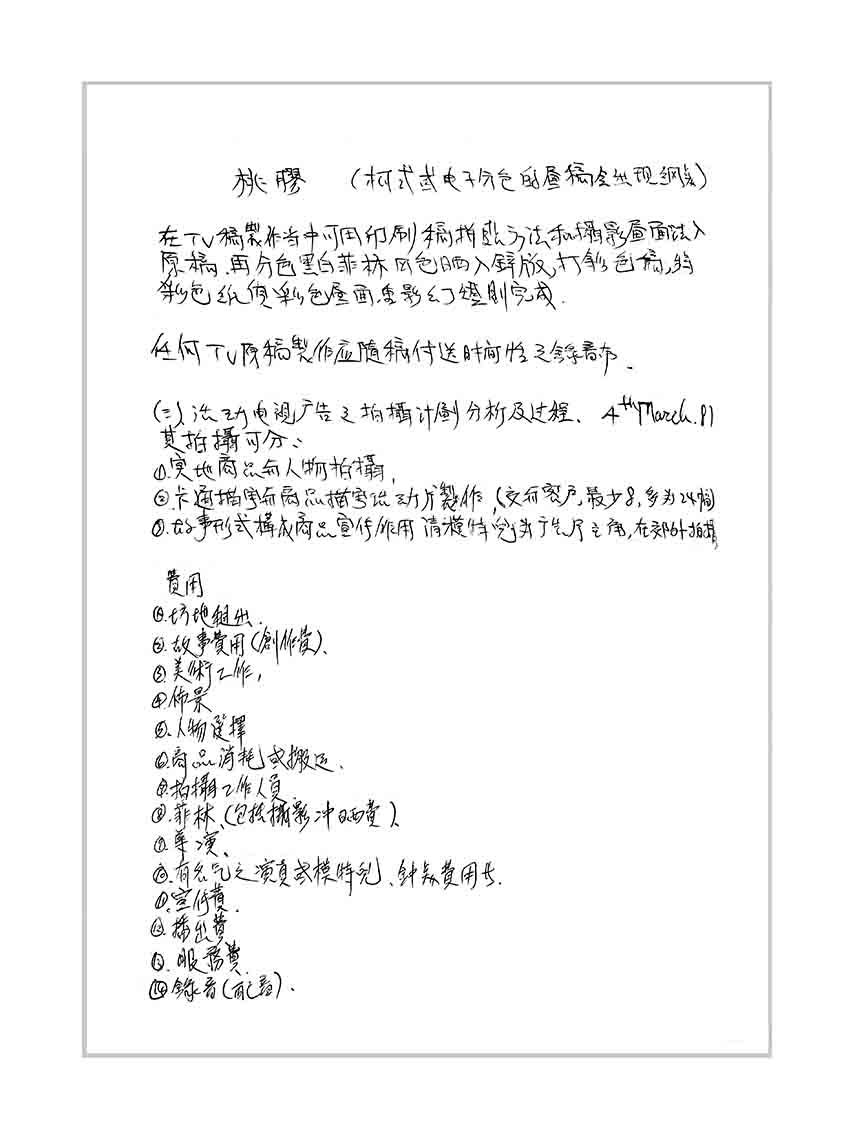 桃膠 (柯式或电子分色的層稿会出现網点)
在TV稿製作当中可用印刷稿拍 方法和攝影畫面法入
原稿.再分色黑白菲林四色晒入鋅版,打彩色稿,
彩色紙 彩色畫面,重影幻燈則完成.
任何TV原稿製作应隨稿付送时间性之錄音布.
(二)活动电視广告之拍攝計劃分析及过程、4th March.81
其拍攝可分:
①.实地商品和人物拍攝,
②卡通描字和商品描字活动片製作,(交布客戶,最少8,多为24個
③.故事形式構成商品宣传作用 請模特兒 主角,在郊外拍攝
費用
①.场地租出.
②.故事費用(創作費)、
③美術工作,
④佈景
⑤.人物選擇
⑥商品消耗或搬运.
⑦拍攝工作人員
⑧.菲林、(包括攝影冲晒費)、
⑨.導演、
⑩.有名气之演員或模特兒、鈡点費用 .
⑪.宣传費.
⑫.播出費
⑬.服務費.
⑭錄音(配音).